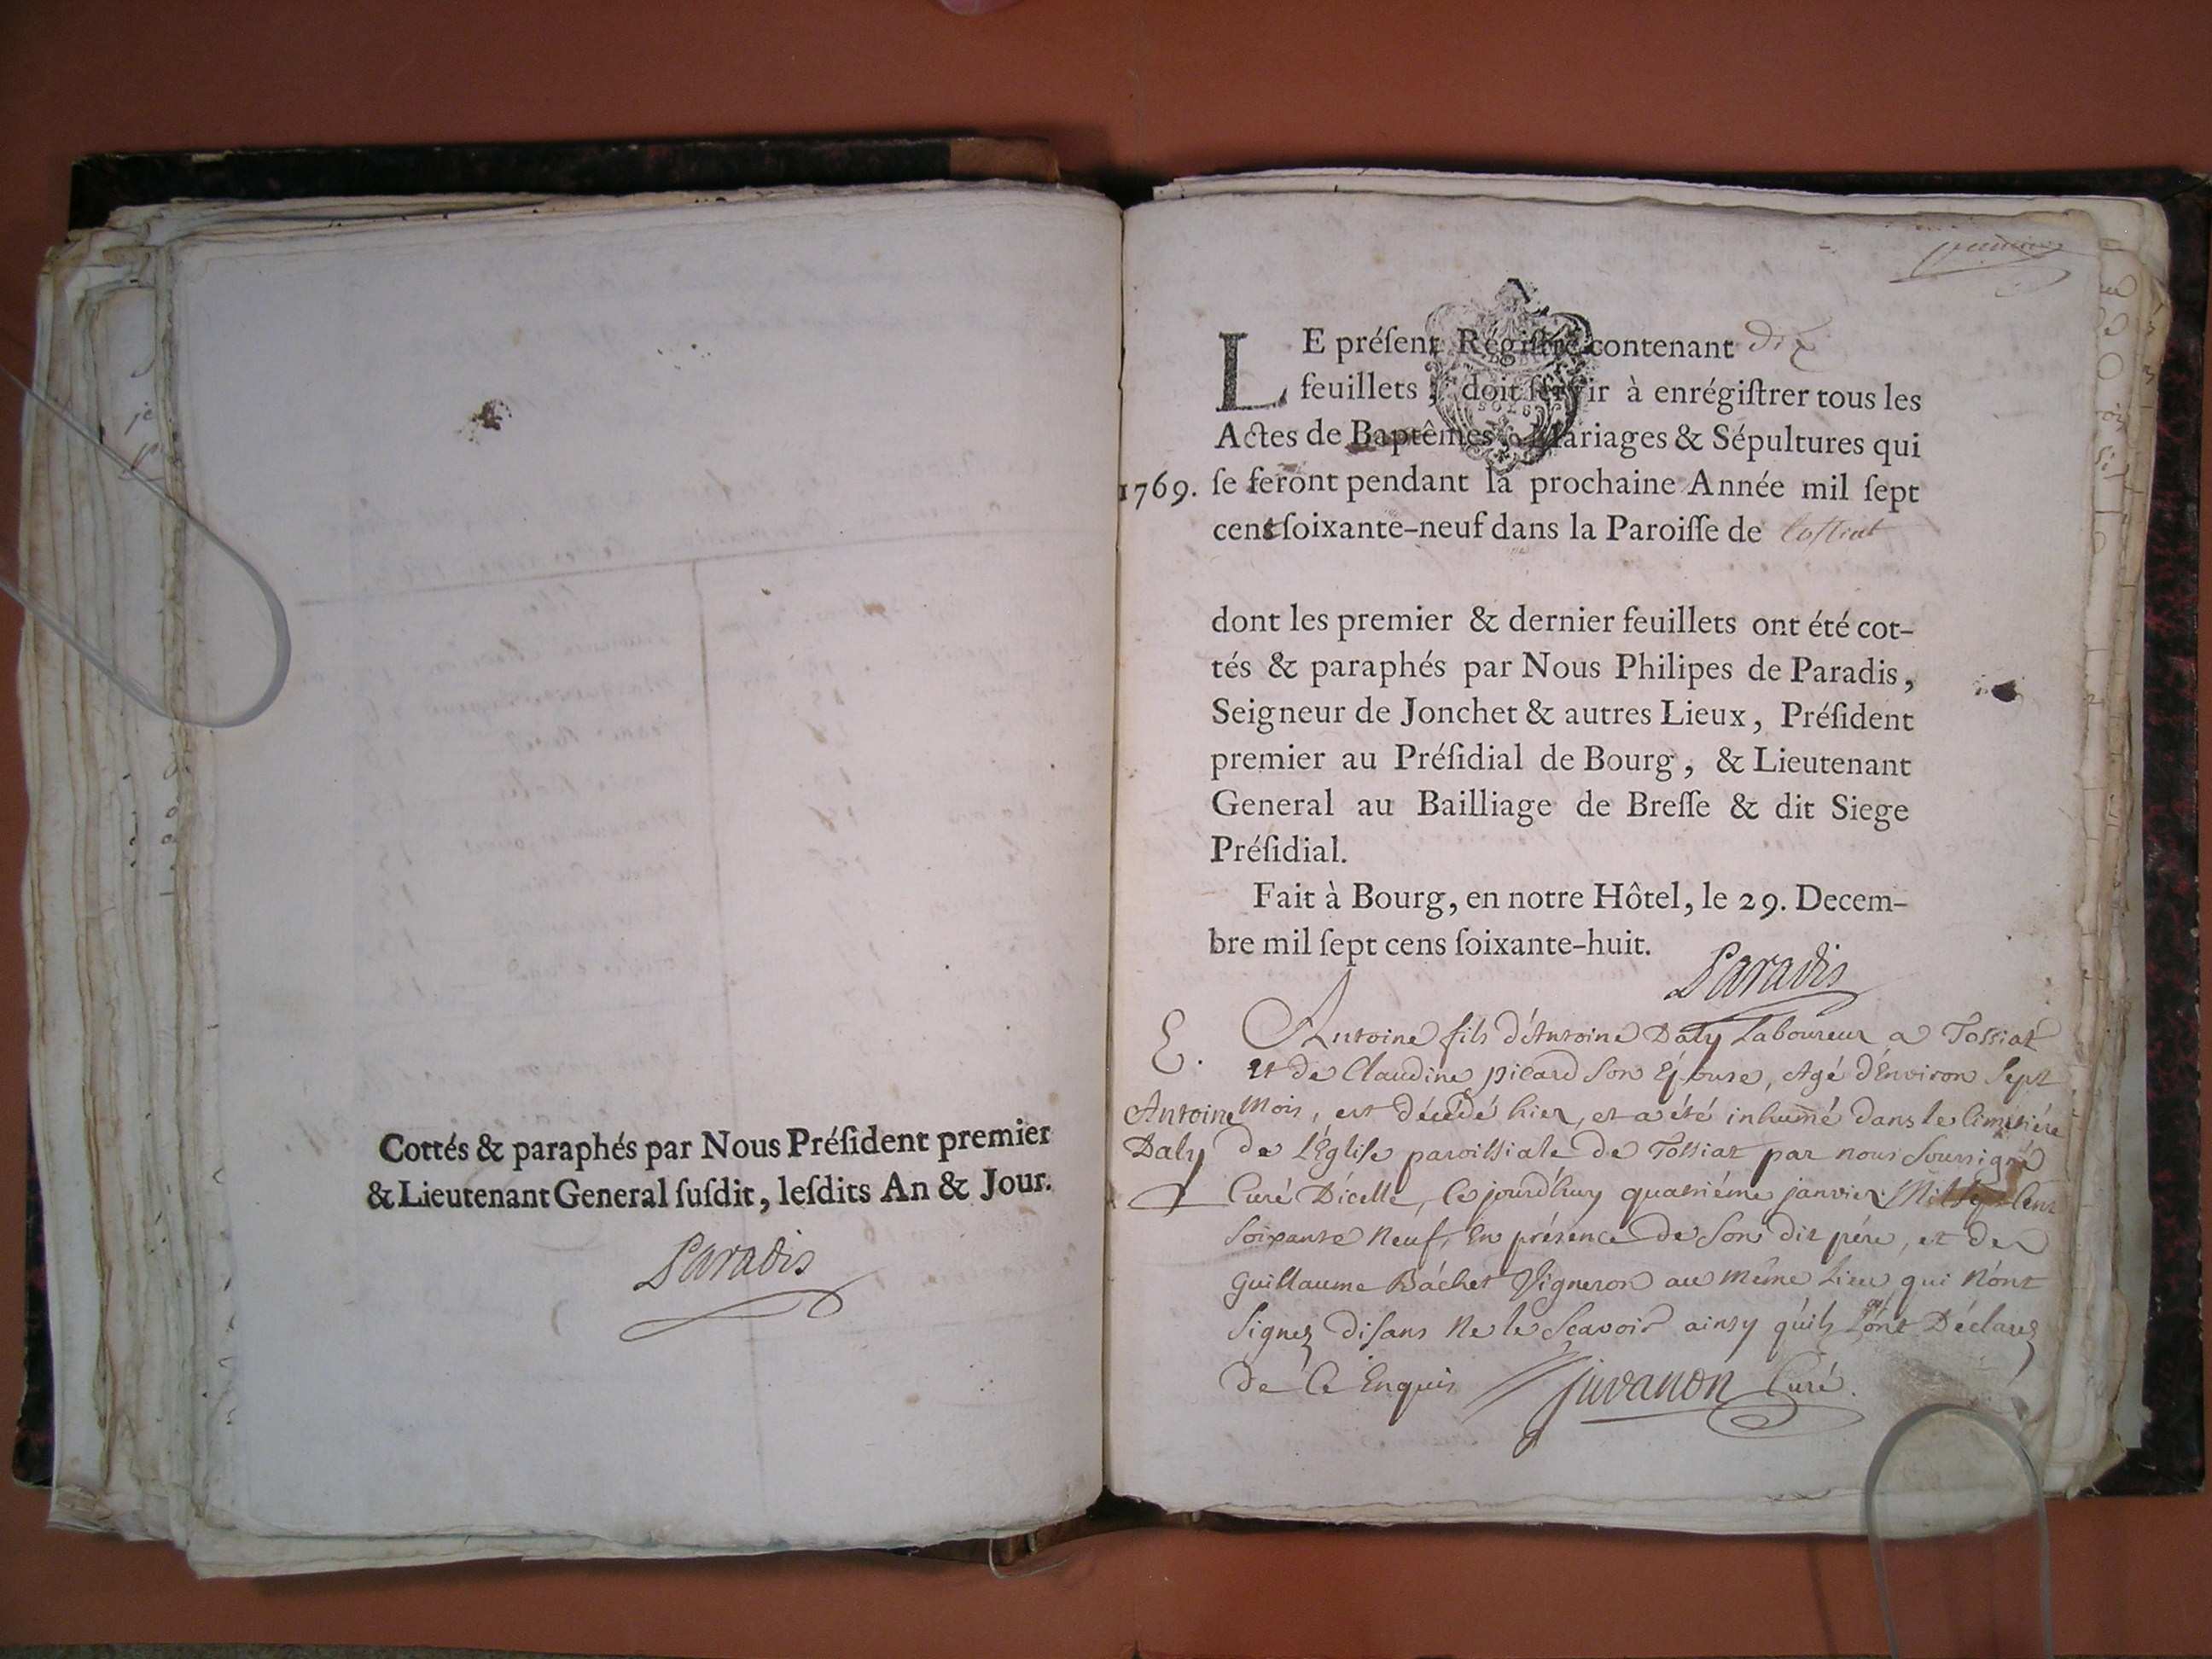 Cottés & paraphés par Nous Préſident premier
& Lieutenant General ſuſdit, leſdits An & Jour.
Paradis
premier
LE préſent Régiſtre contenant dix
feuillets, doit ſervir à enrégiſtrer tous les
Actes de Baptêmes, Mariages & Sépultures qui
1769. ſe feront pendant la prochaine Année mil ſept
cent ſoixante-neuf dans la Paroiſſe de Toſſiat
dont les premier & dernier feuillets ont été cot-
tés & paraphés par Nous Philipes de Paradis,
Seigneur de Jonchet & autres Lieux, Préſident
premier au Préſidial de Bourg, & Lieutenant
General au Bailliage de Breſſe & dit Siege
Préſidial.
Fait à Bourg, en notre Hôtel, le 29. Decem-
bre mil ſept cens ſoixante-huit.
Paradis
E.
Antoine
Daly
Antoine fils d'Antoine Daly Laboureur a Tossiat
et de Claudine picard Son Épouse, Agé d'Environ Sept
Mois, est décédé hier, et a été inhumé dans le Cimetiére
de L'Église paroissiale de Tossiat par nous Soussigné
Curé D'icelle, Ce jourd'huy quatriéme janvier Mil Sept Cent
Soixante Neuf, En présence de Son dit pére, et de
Guillaume Bachet Vigneron au même Lieu qui N'ont
Signez disans Ne le Sçavoir ainsy qu'ils L'ont Déclarez
de Ce Enquis Juvanon Curé.